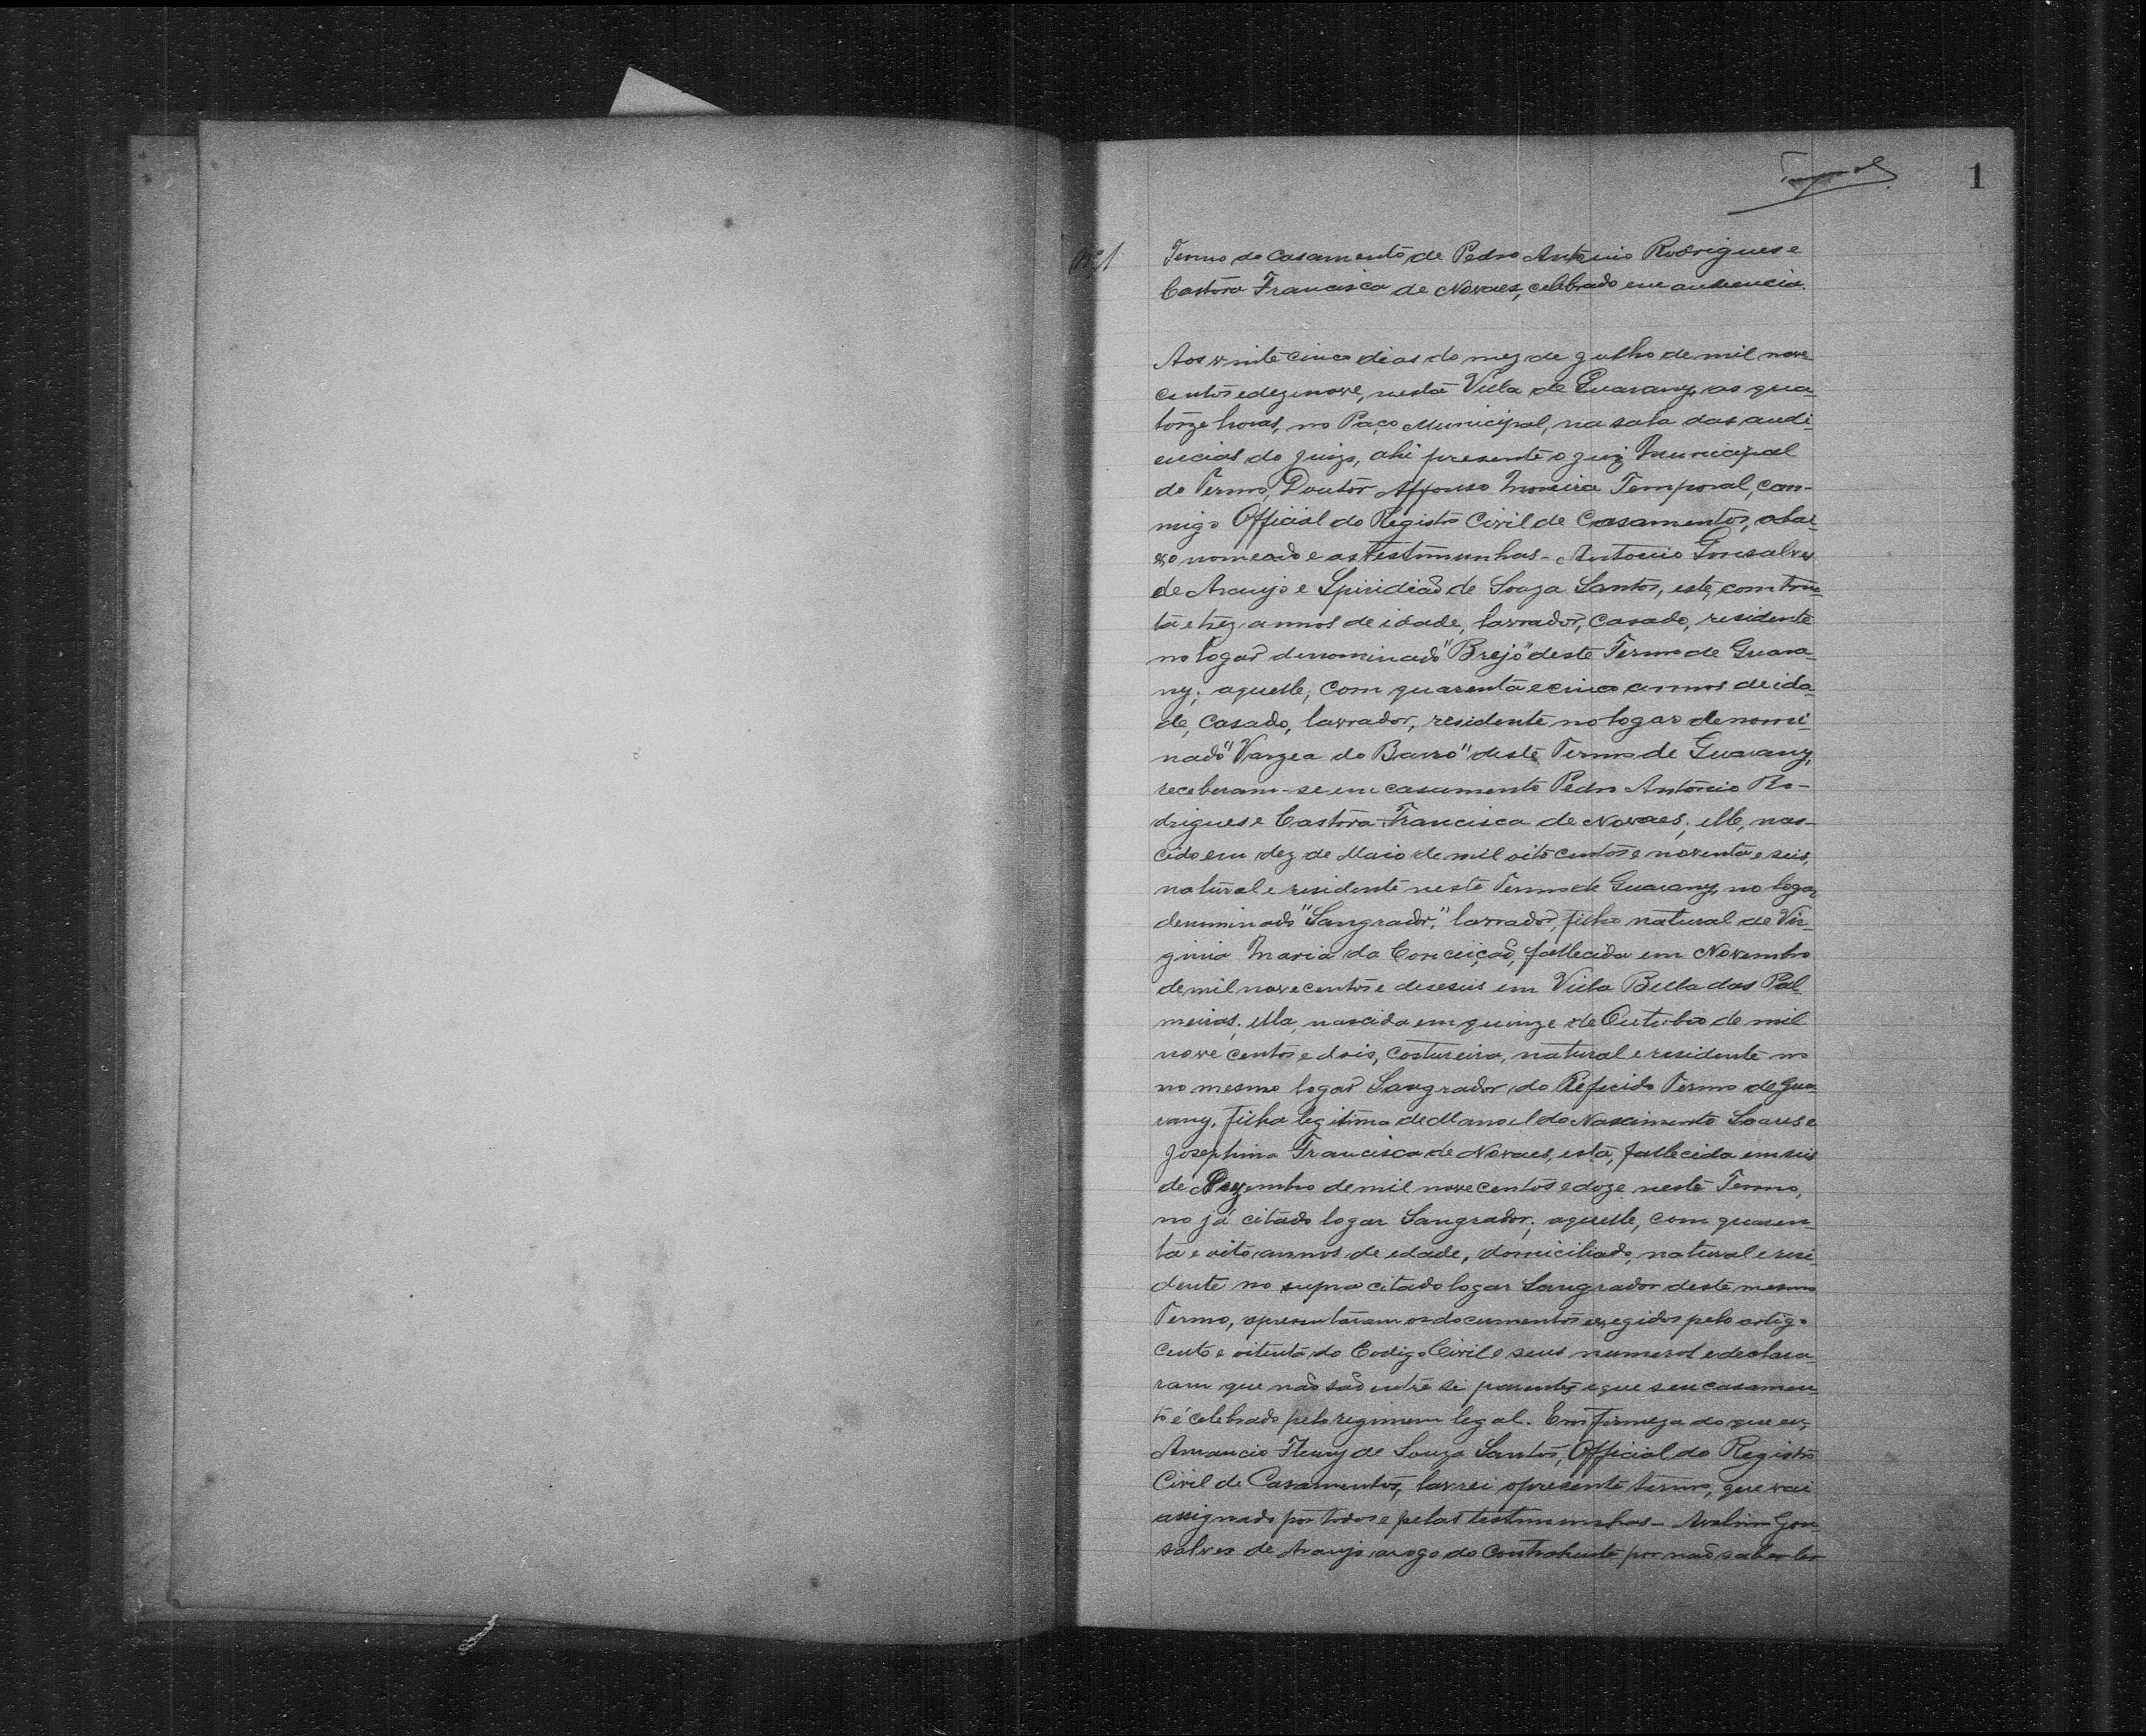 Temporal
1
Nº 1
Termo do casamento de Pedro Antonio Rodrigues e
Castôra Francisca de Novaes, celebrado em audiencia.
Aos vinte cinco dias do mez de Julho de mil nove
centos e dezenove, nesta Villa de Guarany, as qua-
torze horas, no Paço Municipal, na sala das audi-
encias do Juizo, ahi presente o Juiz Municipal
do Termo, Doutor Affonso Moreira Temporal, com-
migo Official do Registro Civil de Casamentos, abai-
xo nomeado e as testimunhas - Antonio Gonsalves
de Araujo e Spiridião de Souza Santos, este, com trin-
ta e trez annos de idade, lavrador, casado, residente
no logar denominado "Brejo" deste Termo de Guara-
ny; aquelle, com quarenta e cinco annos de ida-
de, casado, lavrador, residente no logar denomi-
nado "Vargea do Barro" deste Termo de Guarany,
receberam-se em casamento Pedro Antônio Ro-
drigues e Castôra Francisca de Novaes; elle, nas-
cido em dez de Maio de mil oito centos e noventa e seis,
natural e residente neste Termo de Guarany, no logar
denominado "Sangrador," lavrador, filho natural de Vir-
ginia Maria da Conceição, fallecida em Novembro
de mil nove centos e deseseis em Villa Bella das Pal-
meiras; ella, nascida em quinze de Outubro de mil
nove centos e dois, costureira, natural e residente no
no mesmo logar Sangrador do Referido Termo de Gua-
rany, filha legitima de Manoel do Nascimento Soares e
Josephina Francisca de Novaes, esta, fallecida em seis
de Dezembro de mil nove centos e doze neste Termo,
no já citado logar Sangrador; aquelle, com quaren-
ta e oito annos de edade, domiciliado, natural e resi-
dente no supra citado logar Sangrador deste mesmo
Termo, apresentaram os documentos exegidos pelo artigo
cento e oitenta do Codigo Civil e seus numeros e declara-
ram que não são entre si parentes e que seu casamen-
to é celebrado pelo regimem legal. Em firmeza do que eu,
Amancio Fleury de Souza Santos, Official do Registro
Civil de Casamentos, lavrei o presente termo, que vai
assignado por todos e pelas testimunhas - Avelino Gon-
salves de Araujo arogo do Contrahente por não saber ler